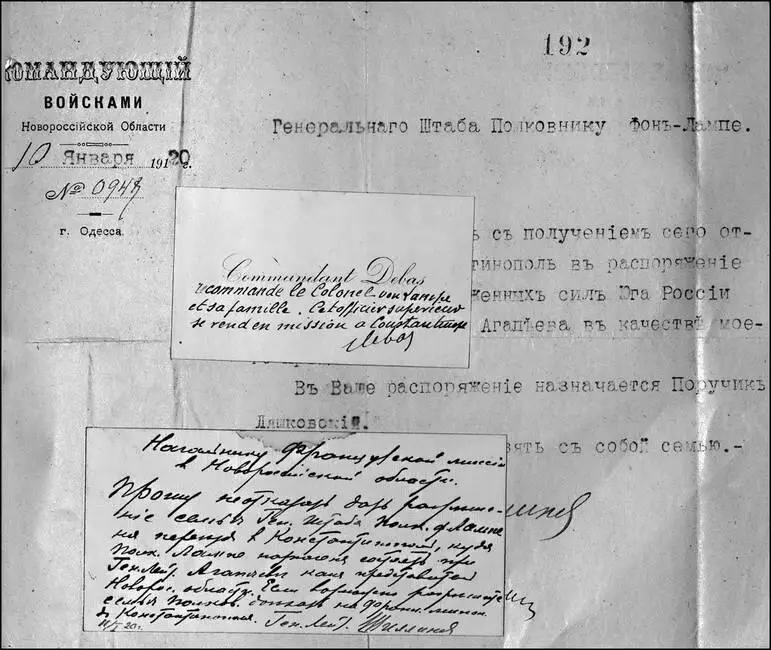 192
КОМАНДУЮЩІЙ
ВОЙСКАМИ
Новороссійской Области
10 Января 1920 г.
№ 0948
г. Одесса.
Генеральнаго Штаба Полковнику Фонъ-Лампе.
ь съ полученіемъ сего от-
тинополь въ распоряженіе
женныхъ силъ Юга Россіи
Агапѣева въ качествѣ мое-
Въ Ваше распоряженіе назначается Поручикъ
Ляшковскій.
взять съ собой семью.-
Commandant Debas
recommande le Colonel von Lampe
et sa famille. Cet officier supérieur
se rend en mission a Constantinople
Debas
Начальнику Французской миссіи
в Новороссійской области.
Прошу не отказать дать разреше-
ніе семье Ген. Штаба Полк. ф Лампе
на переезд в Константинополь, куда
Полк. Лампе
Ген. Лейт. Агапееве как представитель
Новорос. области. Если возможно разрешите
семье Полков.
до Константинополя. Ген. Лейт. Шиллинг